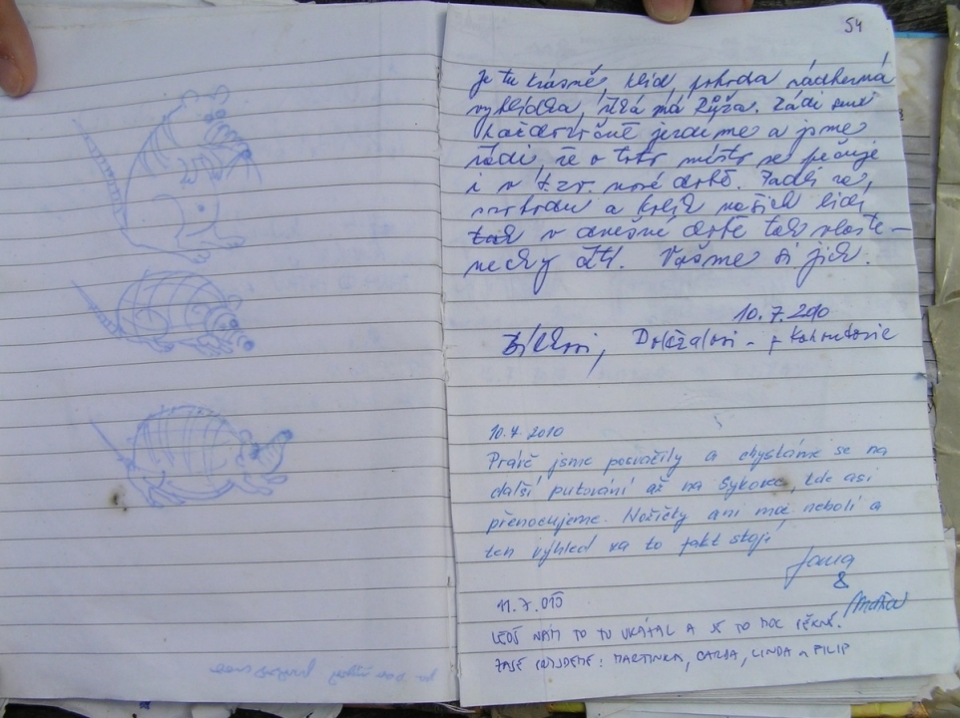 54
Je tu krásně, klid pohoda nádherná
vyhlídka, říká má Růža. Rádi sem
každoročně jezdíme a jsme
rádi, že o toto místo se pečuje
i v t.zv. nové době. Zaděj za
svobodu a kolik našich lidí
tak v dnešní době tak vlaste-
necky cítí. Važme si jich.
10.7.2010
Bílkovi, Doležalovi - z Kohoutovic
10.7.2010
Právě jsme posvačily a chystáme se na
další putování až na Sykovec, kde asi
přenocujeme. Nožičky ani moc nebolí a
ten výhled za to fakt stojí
Jana
&
11.7.010
LEOŠ NÁM TO TU UKÁZAL A JE TO MOC PĚKNÉ.
ZASE PŘIJDEME: MARTINKA, LINDA a FILIP